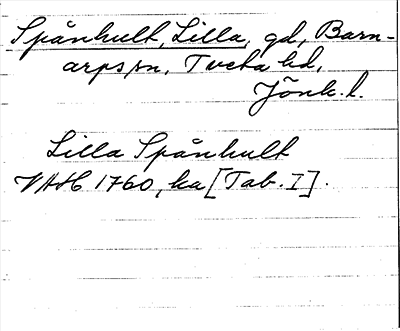 Spånhult, Lilla, gd, Barn-
arps sn, Tveta hd,
Jönk. l.
Lilla Spånhult
VHAH 1760, ka [Tab. I].